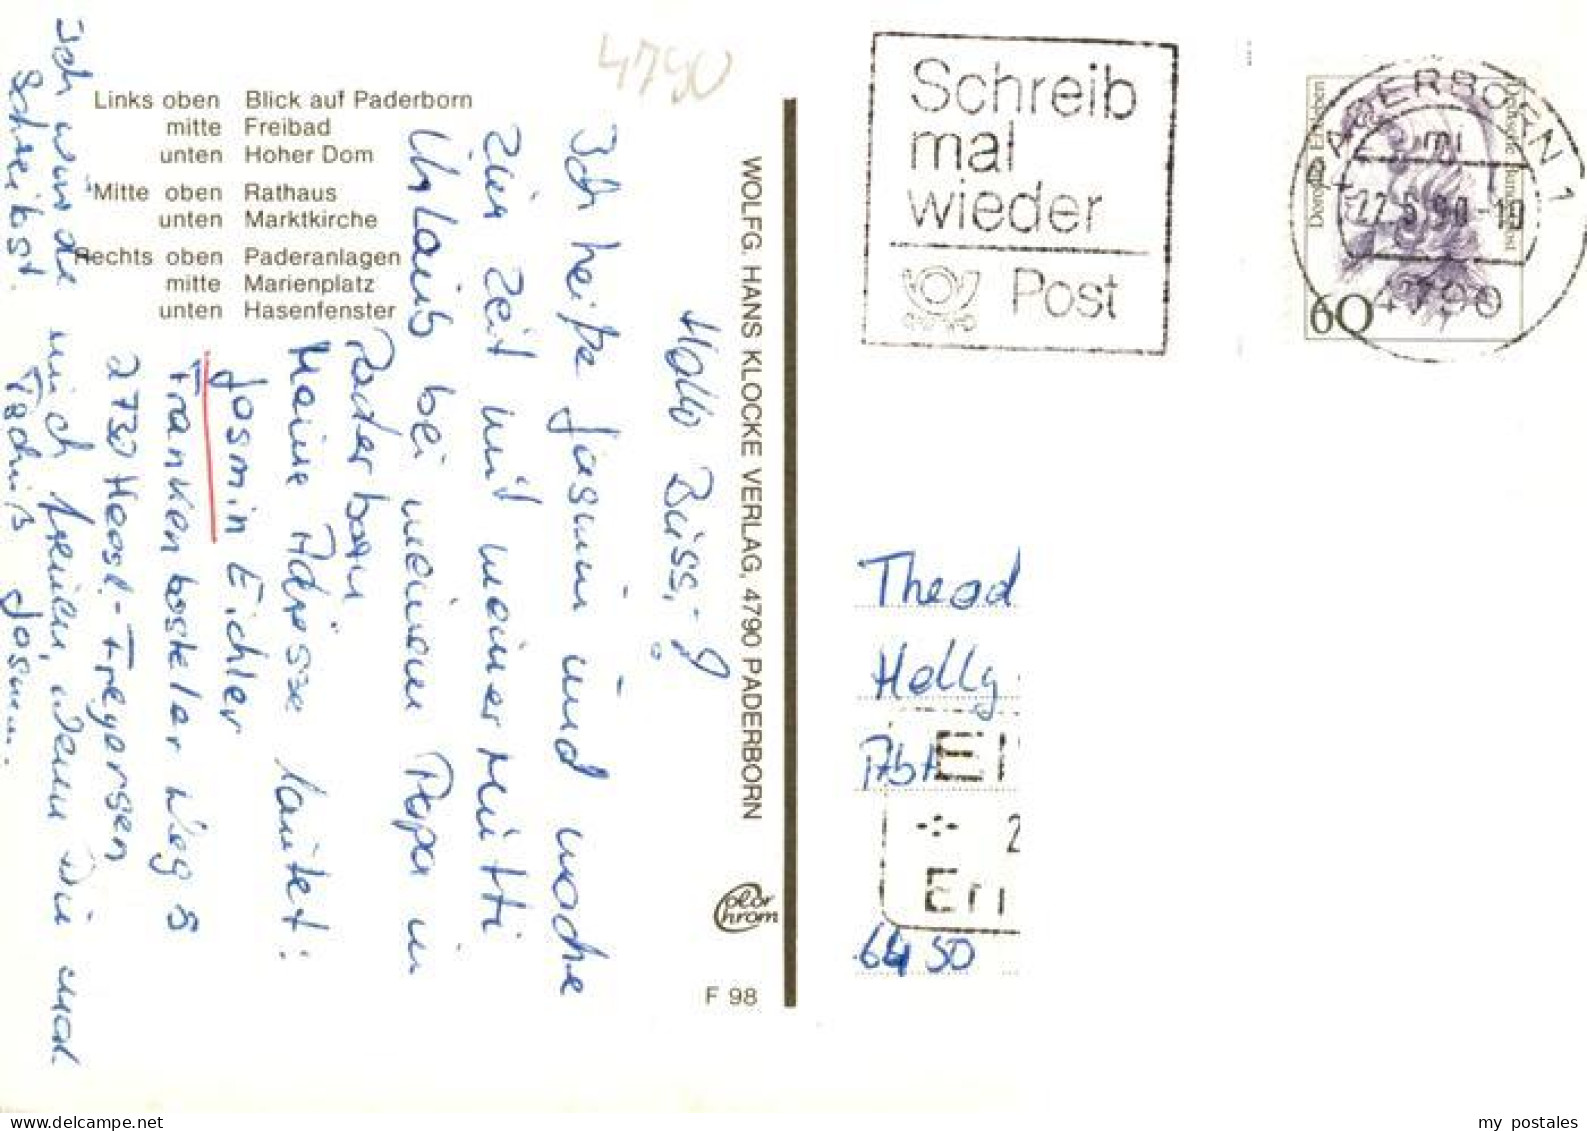 4790
Links oben Blick auf Paderborn
mitte Freibad
unten Hoher Dom
Mitte oben Rathaus
unten Marktkirche
Rechts oben Paderanlagen
mitte Marienplatz
unten Hasenfenster
WOLFG. HANS KLOCKE VERLAG, 4790 PADERBORN
Color Chrom
F 98
Hallo Büss,-
Ich heiße Jasmin und mache
zur Zeit mit meiner Mutti
Urlaub bei meinem Papa in
Paderborn
Meine Adresse lautet:
Jasmin Eichler
Frankenbosteler Weg 8
2730 Heesl.-Freyersen
Ich würde mich freuen, wenn Du mal
schreibst. Tschüß Jasmin.
Schreib
mal
wieder
Post
PADERBORN 1
mi
22.5.90-10
4790
Dorothea Erxleben
Deutsche Bundespost
60
Theod
Helly
Abt
EI
2
Eri
6450
my postales